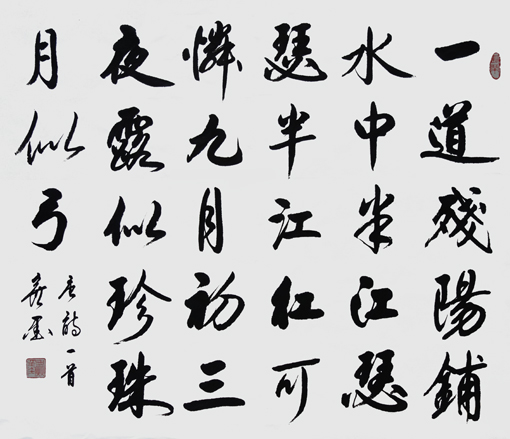 一道殘陽鋪
水中半江瑟
瑟半江紅可
憐九月初三
夜露似珍珠
月似弓
唐詩一首